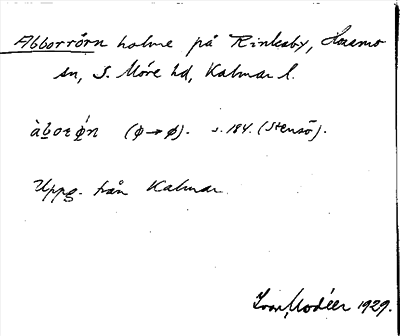 Abborrörn holme på Rinkaby, Hossmo
sn, S. Möre hd, Kalmar l.
(ø→ø). s. 184. (Stensö).
Uppg. från Kalmar.
Ivar Modéer 1929.